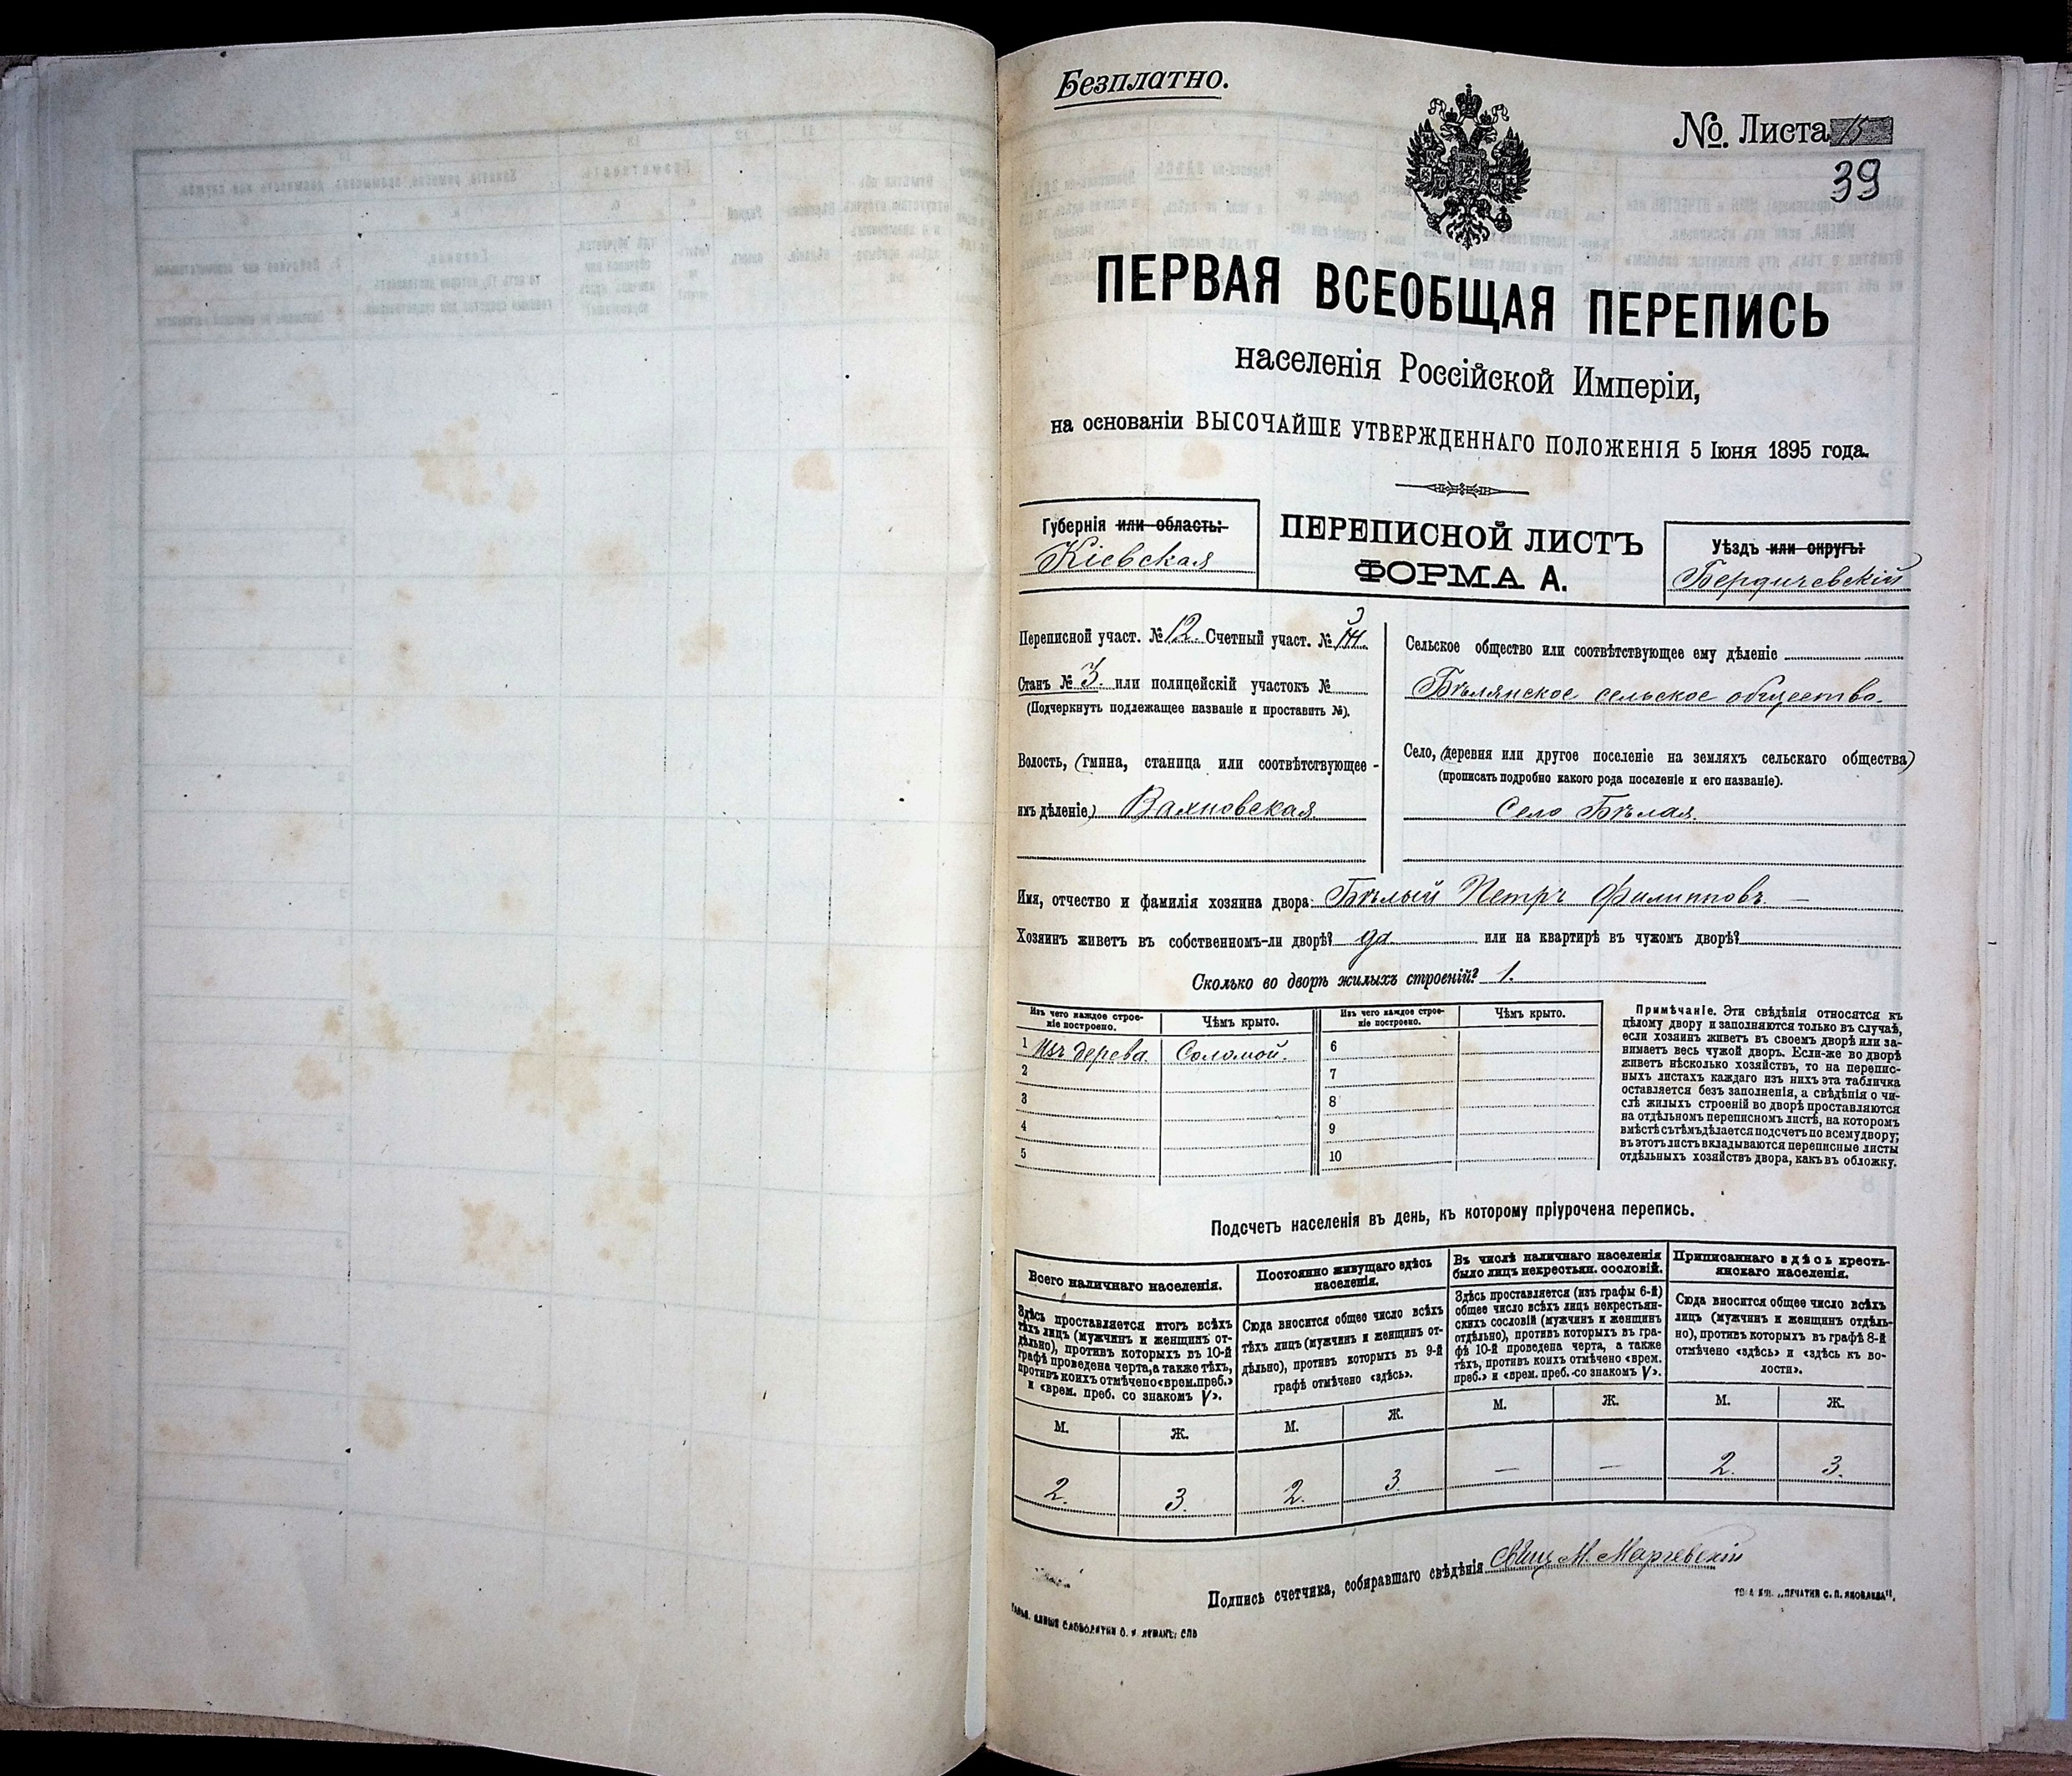 Безплатно.
№ Листа 15
39
ПЕРВАЯ ВСЕОБЩАЯ ПЕРЕПИСЬ
населенія Россійской Имперіи,
на основаніи ВЫСОЧАЙШЕ УТВЕРЖДЕННАГО ПОЛОЖЕНІЯ 5 Іюня 1895 года.
Губернія или область:
Кіевская
ПЕРЕПИСНОЙ ЛИСТЪ
ФОРМА А.
Уѣздъ или округъ:
Бердичевскій
Переписной участ. № 12. Счетный участ. № 3
Станъ № 3. или полицейскій участокъ №
(Подчеркнуть подлежащее названіе и проставить №).
Волость, (гмина, станица или соотвѣтствующее
имъ дѣленіе) Вахновская
Сельское общество или соотвѣтствующее ему дѣленіе
Бѣлянское сельское общество.
Село, (деревня или другое поселеніе на земляхъ сельскаго общества)
(прописать подробно какого рода поселеніе и его названіе).
Село Бѣлая.
Имя, отчество и фамилія хозяина двора: Бѣлый Петръ Филипповъ. —
Хозяинъ живетъ въ собственномъ-ли дворѣ? да или на квартирѣ въ чужомъ дворѣ?
Сколько во дворѣ жилыхъ строеній? 1.
Изъ чего каждое строе-
ніе построено.
Чѣмъ крыто.
Изъ чего каждое строе-
ніе построено.
Чѣмъ крыто.
1 Изъ дерева. Соломой. 6
2 7
3 8
4 9
5 10
Примѣчаніе. Эти свѣдѣнія относятся къ
цѣлому двору и заполняются только въ случаѣ,
если хозяинъ живетъ въ своемъ дворѣ или за-
нимаетъ весь чужой дворъ. Если-же во дворѣ
живетъ нѣсколько хозяйствъ, то на перепис-
ныхъ листахъ каждаго изъ нихъ эта табличка
оставляется безъ заполненія, а свѣдѣнія о чи-
слѣ жилыхъ строеній во дворѣ проставляются
на отдѣльномъ переписномъ листѣ, на которомъ
вмѣстѣ съ тѣмъ дѣлается подсчетъ по всему двору;
въ этотъ листъ вкладываются переписные листы
отдѣльныхъ хозяйствъ двора, какъ въ обложку.
Подсчетъ населенія въ день, къ которому пріурочена перепись.
Всего наличнаго населенія.
Здѣсь проставляется итогъ всѣхъ
тѣхъ лицъ (мужчинъ и женщинъ от-
дѣльно), противъ которыхъ въ 10-й
графѣ проведена черта, а также тѣхъ,
противъ коихъ отмѣчено «врем. преб.»
и «врем. преб. со знакомъ V».
Постоянно живущаго здѣсь
населенія.
Сюда вносится общее число всѣхъ
тѣхъ лицъ (мужчинъ и женщинъ от-
дѣльно), противъ которыхъ въ 9-й
графѣ отмѣчено «здѣсь».
Въ числѣ наличнаго населенія
было лицъ некрестьян. сословій.
Здѣсь проставляется (изъ графы 6-й)
общее число всѣхъ лицъ некрестьян-
скихъ сословій (мужчинъ и женщинъ
отдѣльно), противъ которыхъ въ гра-
фѣ 10-й проведена черта, а также
тѣхъ, противъ коихъ отмѣчено «врем.
преб.» и «врем. преб. со знакомъ V».
Приписаннаго здѣсь кресть-
янскаго населенія.
Сюда вносится общее число всѣхъ
лицъ (мужчинъ и женщинъ отдѣль-
но), противъ которыхъ въ графѣ 8-й
отмѣчено «здѣсь» и «здѣсь въ во-
лости».
М. Ж. М. Ж. М. Ж. М. Ж.
2. 3. 2. 3. — — 2. 3.
Подпись счетчика, собиравшаго свѣдѣнія Свящ. М.